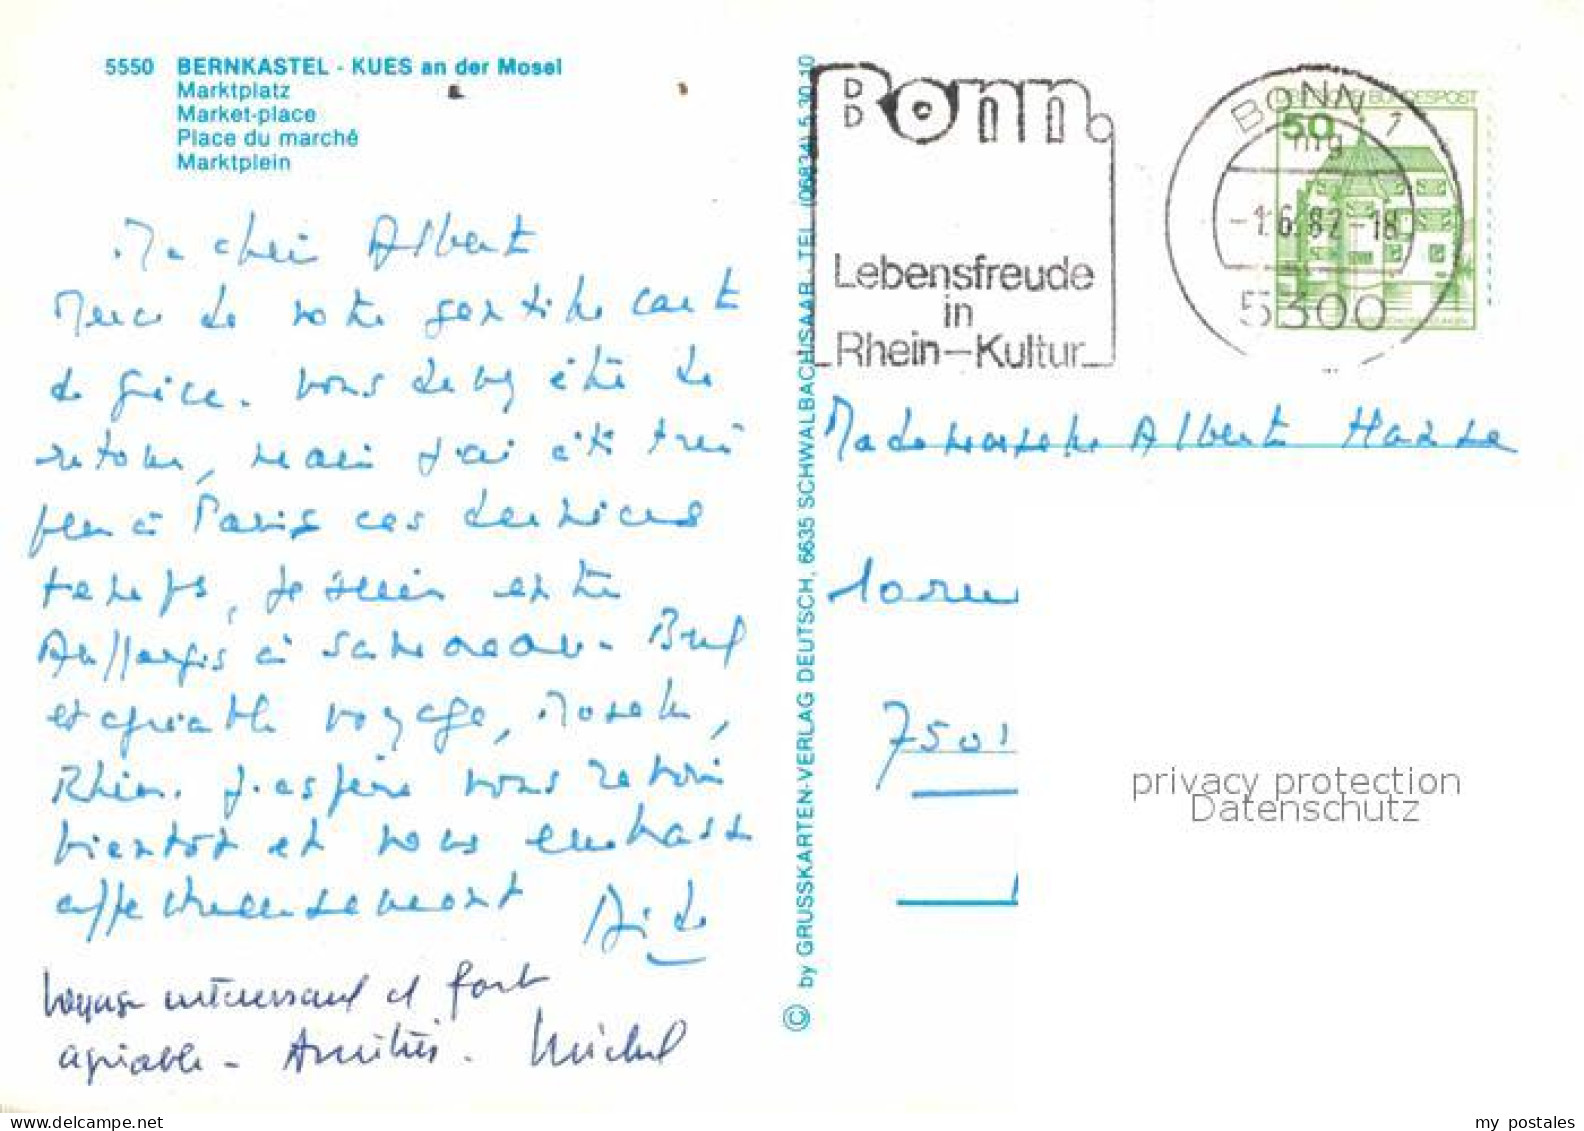 5550 BERNKASTEL - KUES an der Mosel
Marktplatz
Market-place
Place du marché
Marktplein
Ma chère Alberte
Merci de votre gentille carte
de Grèce. Vous devez être de
retour, mais j'ai été très
peu à Paris ces derniers
temps, je suis entre
à Bref
et agréable voyage, Moselle,
Rhin. J'espère vous revoir
bientôt et vous embrasse
affectueusement
Voyage intéressant et fort
agréable - Amitiés. Michel
© by GRUSSKARTEN-VERLAG DEUTSCH, 6635 SCHWALBACH/SAAR. TEL. (06834) 5 30 10
Bonn.
Lebensfreude
in
Rhein-Kultur
BONN 1
mg
-1.6.82-18
5300
50
BUNDESPOST
Mademoiselle Alberte
10 rue
7501
privacy protection
Datenschutz
my postales